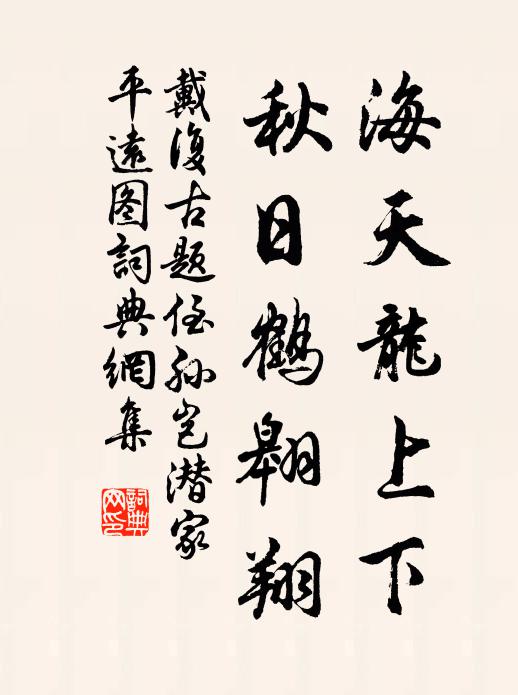 海天龍上下
秋日鶴翱翔
戴復古題侄孫豈潜家
平遠图詞典網集
詞典网印